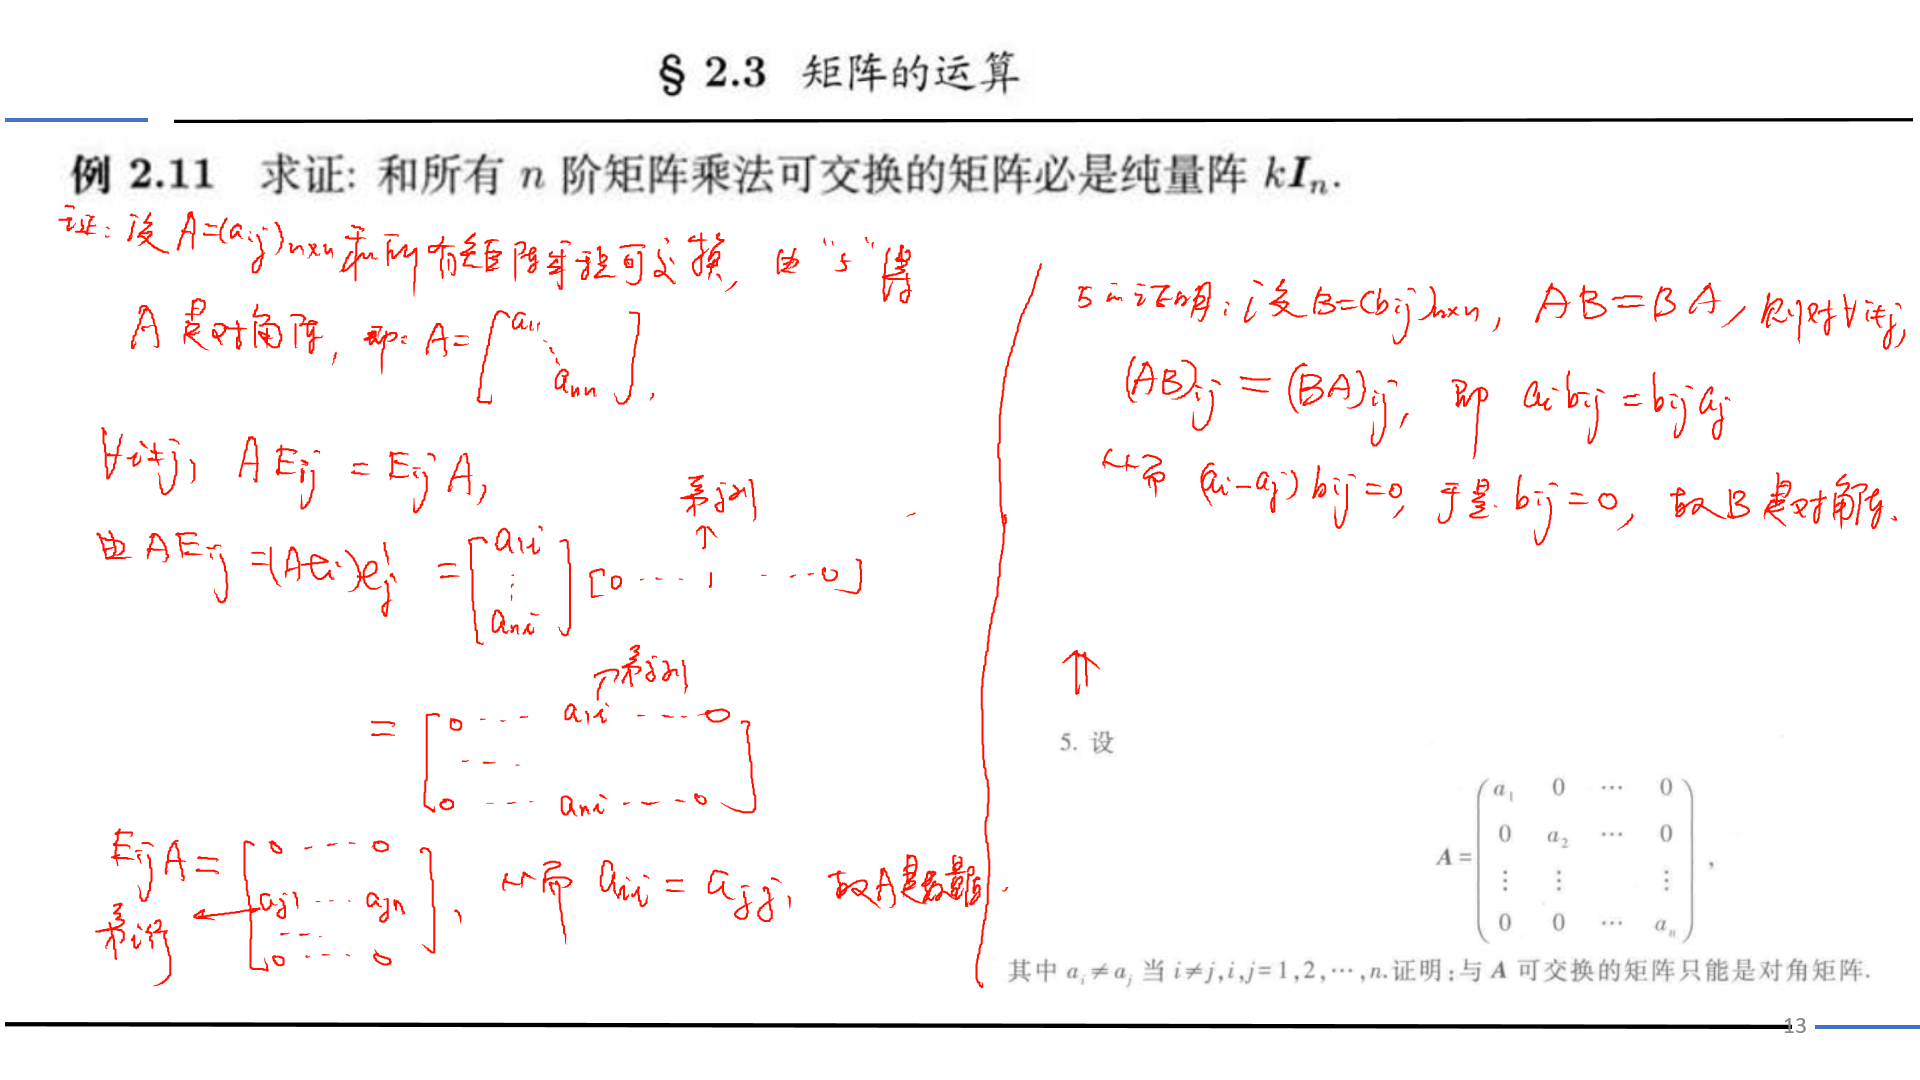 § 2.3 矩阵的运算
例 2.11 求证: 和所有 n 阶矩阵乘法可交换的矩阵必是纯量阵 kIₙ.
证: 设 A=(aij)n×n 和所有矩阵乘积可交换, 由 "5" 得
A 是对角阵, 即: A= [ a11 ⋱ ann ],
∀i≠j, A Eij = Eij A,
第j列
↑
由 AEij =(Aei)ej' = [ a1i ⋮ ani ] [0 ··· 1 ··· 0]
↑第j列
= [ 0 ··· a1i ··· 0
···
0 ··· ani ··· 0 ]
EijA= [ 0 ··· 0
aj1 ··· ajn
···
0 ··· 0 ], 从而 aii = ajj, 故A是数量阵.
第i行 ←
5的证明: 设B=(bij)n×n, AB=BA, 则对∀i≠j,
(AB)ij = (BA)ij, 即 aibij = bijaj
从而 (ai-aj) bij=0, 于是 bij=0, 故B是对角阵.
⇑
5. 设
A = ( a₁ 0 ⋯ 0
0 a₂ ⋯ 0
⋮ ⋮ ⋮
0 0 ⋯ aₙ ),
其中 aᵢ≠aⱼ 当 i≠j,i,j=1,2,⋯,n.证明:与 A 可交换的矩阵只能是对角矩阵.
13